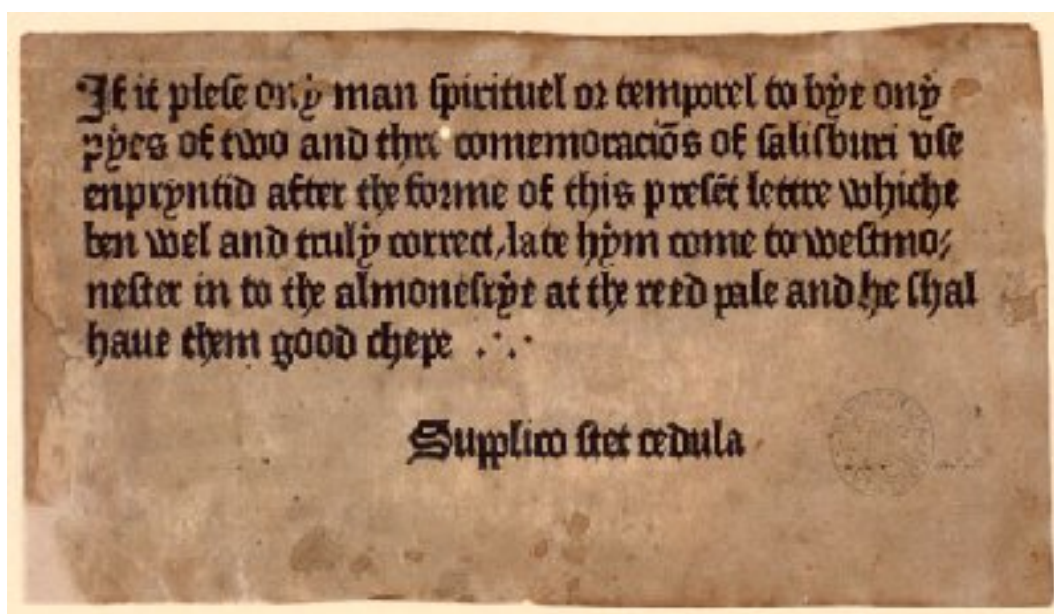 If it plese ony man spirituel or temporel to bye ony
pyes of two and thre comemoraciōs of salisburi vse
enpryntid after the forme of this presēt lettre whiche
ben wel and truly correct, late hym come to westmo⸗
nester in to the almonesrye at the reed pale and he shal
haue them good chepe .·.
Supplico stet cedula